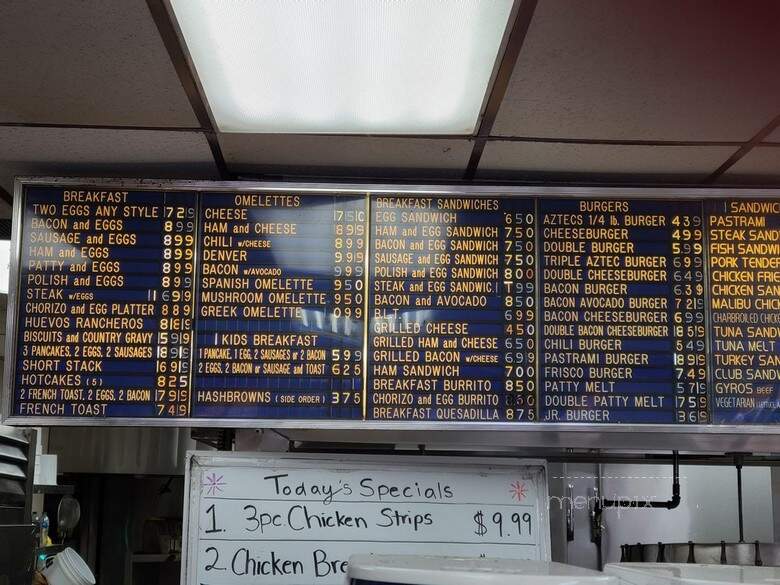 BREAKFAST
TWO EGGS ANY STYLE 729
BACON and EGGS 899
SAUSAGE and EGGS 899
HAM and EGGS 899
PATTY and EGGS 899
POLISH and EGGS 899
STEAK W/EGGS 1 699
CHORIZO and EGG PLATTER 889
HUEVOS RANCHEROS
BISCUITS and COUNTRY GRAVY 599
3 PANCAKES, 2 EGGS, 2 SAUSAGES 899
SHORT STACK 699
HOTCAKES (5) 825
2 FRENCH TOAST, 2 EGGS, 2 BACON 799
FRENCH TOAST 749
OMELETTES
CHEESE 750
HAM and CHEESE 899
CHILI W/CHEESE 899
DENVER 999
BACON W/AVOCADO 999
SPANISH OMELETTE 950
MUSHROOM OMELETTE 950
GREEK OMELETTE 099
KIDS BREAKFAST
1 PANCAKE, 1 EGG, 2 SAUSAGES or 2 BACON 599
2 EGGS, 2 BACON or SAUSAGE and TOAST 625
HASHBROWNS (SIDE ORDER) 375
BREAKFAST SANDWICHES
EGG SANDWICH 650
HAM and EGG SANDWICH 750
BACON and EGG SANDWICH 750
SAUSAGE and EGG SANDWICH 750
POLISH and EGG SANDWICH 800
STEAK and EGG SANDWIC 99
BACON and AVOCADO 850
B.L.T. 699
GRILLED CHEESE 450
GRILLED HAM and CHEESE 650
GRILLED BACON W/CHEESE 699
HAM SANDWICH 700
BREAKFAST BURRITO 850
CHORIZO and EGG BURRITO
BREAKFAST QUESADILLA 875
BURGERS
AZTECS 1/4 lb. BURGER 439
CHEESEBURGER 499
DOUBLE BURGER 599
TRIPLE AZTEC BURGER 699
DOUBLE CHEESEBURGER 649
BACON BURGER 639
BACON AVOCADO BURGER 729
BACON CHEESEBURGER 699
DOUBLE BACON CHEESEBURGER 859
CHILI BURGER 549
PASTRAMI BURGER 899
FRISCO BURGER 749
PATTY MELT 579
DOUBLE PATTY MELT 759
JR. BURGER 369
SANDWIC
PASTRAMI
STEAK SAND
FISH SANDW
PORK TENDER
CHICKEN FRIE
CHICKEN SAN
MALIBU CHIC
CHARBROILED CHICKE
TUNA SAND
TUNA MELT
TURKEY SAN
CLUB SANDW
GYROS BEEF
VEGETARIAN
Today's Specials
1. 3pc. Chicken Strips $9.99
2. Chicken Bre
menupix